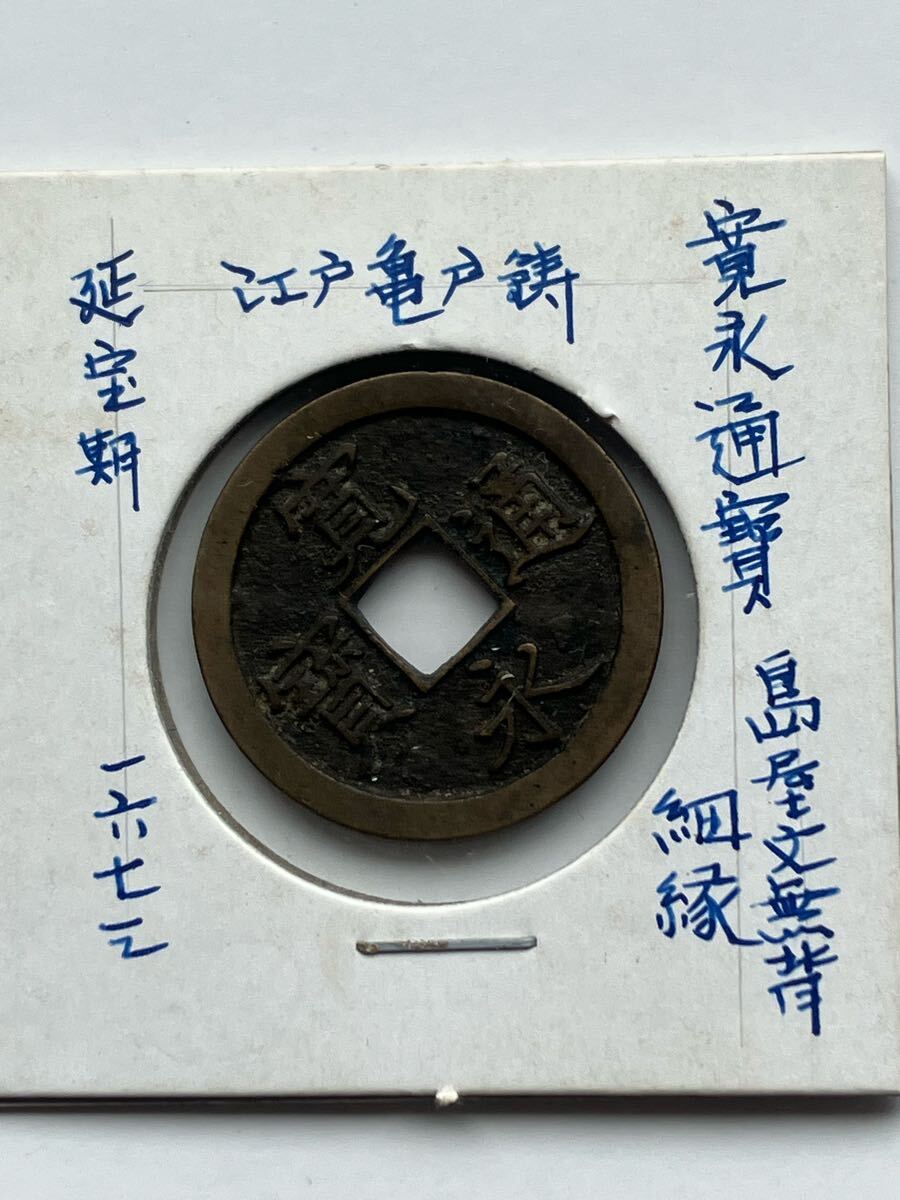 寛永通寳 島屋文無背
細縁
江戸亀戸鋳
延宝期
一六七三
寛永通寳